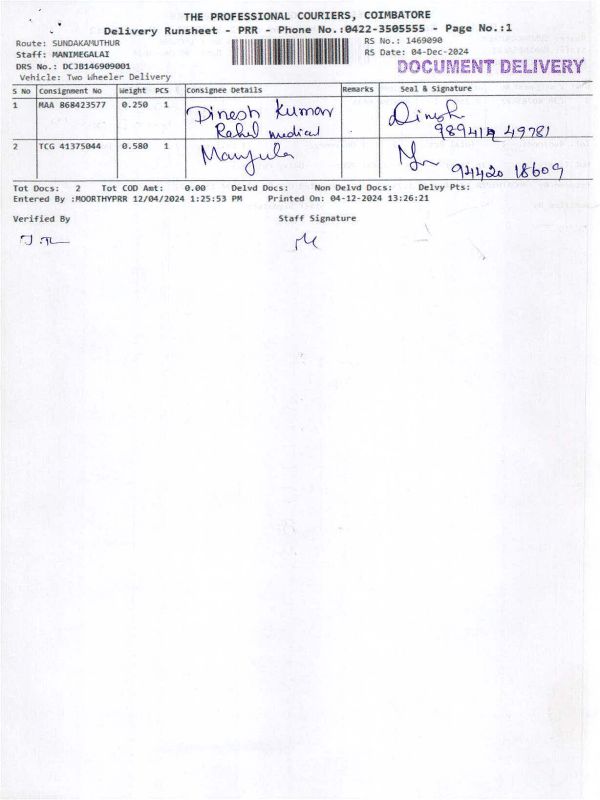 THE PROFESSIONAL COURIERS, COIMBATORE
Delivery Runsheet - PRR - Phone No.:0422-3505555 - Page No.:1
Route: SUNDAKAMUTHUR RS No.: 1469090
Staff: MANIMEGALAI RS Date: 04-Dec-2024
DRS No.: DCJB146909001 DOCUMENT DELIVERY
Vehicle: Two Wheeler Delivery
S No Consignment No Weight PCS Consignee Details Remarks Seal & Signature
1 MAA 868423577 0.250 1 Dinesh Kumar Dinesh
Rahul medical 98941 49781
2 TCG 41375044 0.580 1 Manjula
94420 18609
Tot Docs: 2 Tot COD Amt: 0.00 Delvd Docs: Non Delvd Docs: Delvy Pts:
Entered By :MOORTHYPRR 12/04/2024 1:25:53 PM Printed On: 04-12-2024 13:26:21
Verified By Staff Signature